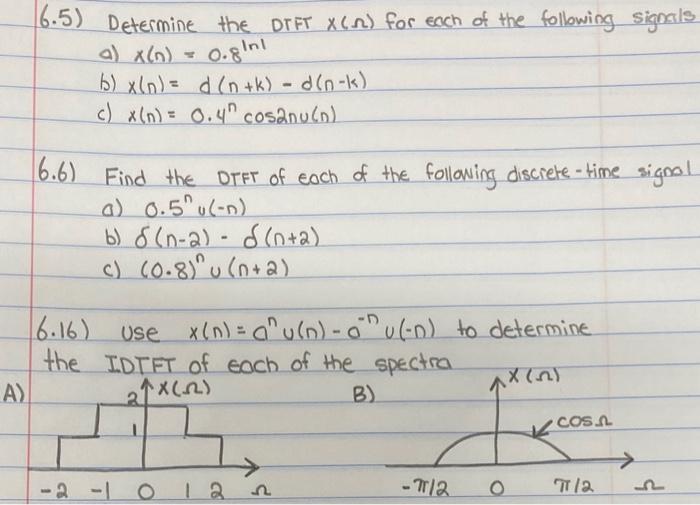 6.5) Determine the DTFT X(Ω) for each of the following signals
a) x(n) = 0.8^|n|
b) x(n) = d(n+k) - d(n-k)
c) x(n) = 0.4^n cos2nu(n)
6.6) Find the DTFT of each of the following discrete-time signal
a) 0.5^n u(-n)
b) δ(n-2) - δ(n+2)
c) (0.8)^n u(n+2)
6.16) Use x(n) = a^n u(n) - a^-n u(-n) to determine
the IDTFT of each of the spectra
A) 2 X(Ω) B) X(Ω)
1 cosΩ
-2 -1 0 1 2 Ω -π/2 0 π/2 Ω